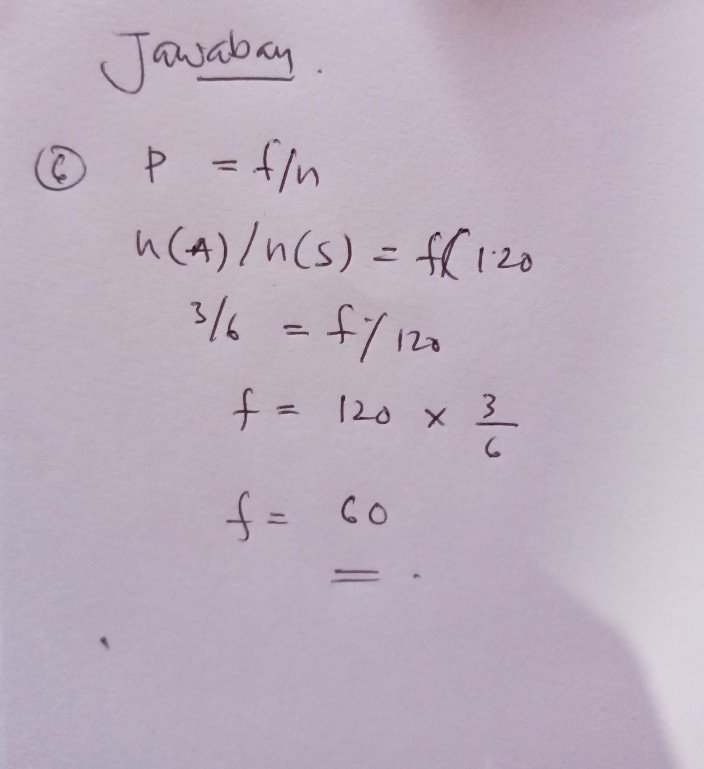 Jawaban.
⑥ P = f/n
n(A)/n(S) = f/120
3/6 = f/120
f = 120 × 3/6
f = 60